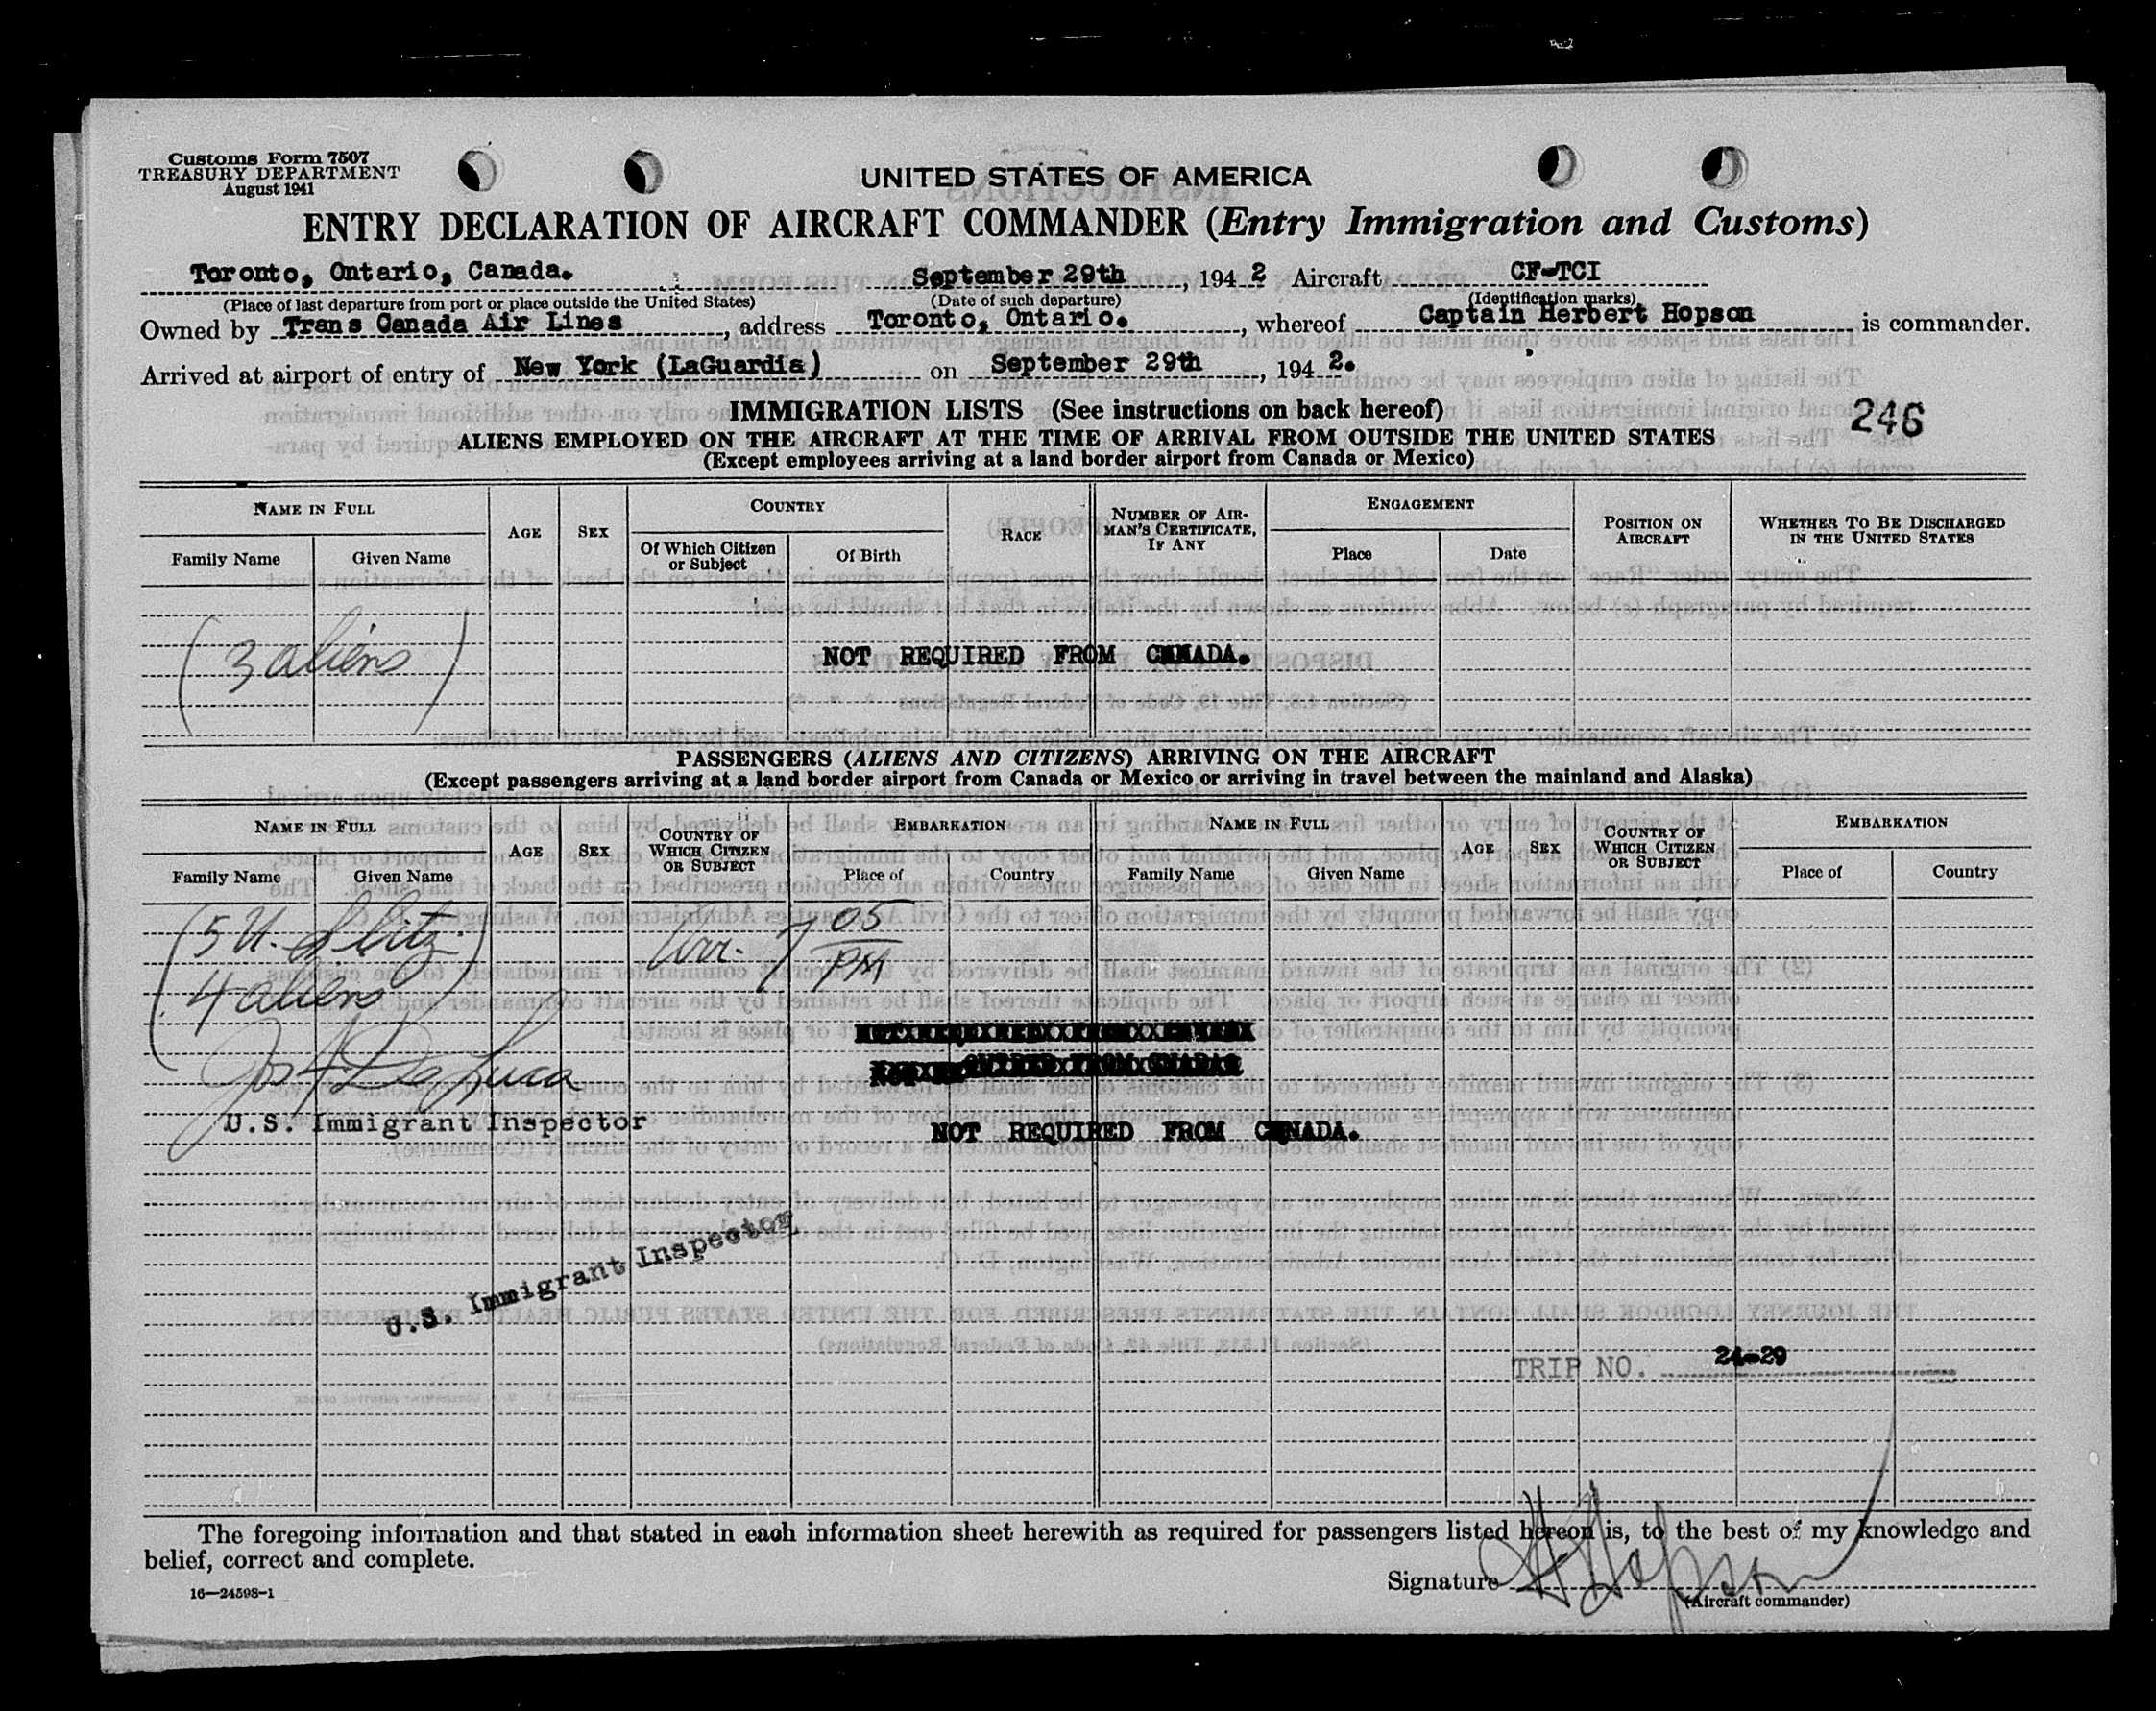 Customs Form 7507
TREASURY DEPARTMENT
August 1941
UNITED STATES OF AMERICA
ENTRY DECLARATION OF AIRCRAFT COMMANDER (Entry Immigration and Customs)
Toronto, Ontario, Canada. September 29th, 194 2 Aircraft CF-TCI
(Place of last departure from port or place outside the United States) (Date of such departure) (Identification marks)
Owned by Trans Canada Air Lines, address Toronto, Ontario., whereof Captain Herbert Hopson is commander.
Arrived at airport of entry of New York (LaGuardia) on September 29th, 194 2.
IMMIGRATION LISTS (See instructions on back hereof)
246
ALIENS EMPLOYED ON THE AIRCRAFT AT THE TIME OF ARRIVAL FROM OUTSIDE THE UNITED STATES
(Except employees arriving at a land border airport from Canada or Mexico)
NAME IN FULL AGE SEX COUNTRY RACE NUMBER OF AIRMAN'S CERTIFICATE, IF ANY ENGAGEMENT POSITION ON AIRCRAFT WHETHER TO BE DISCHARGED IN THE UNITED STATES
Family Name Given Name Of Which Citizen or Subject Of Birth Place Date
(3 aliens)
NOT REQUIRED FROM CANADA.
PASSENGERS (ALIENS AND CITIZENS) ARRIVING ON THE AIRCRAFT
(Except passengers arriving at a land border airport from Canada or Mexico or arriving in travel between the mainland and Alaska)
NAME IN FULL AGE SEX COUNTRY OF WHICH CITIZEN OR SUBJECT EMBARKATION NAME IN FULL AGE SEX COUNTRY OF WHICH CITIZEN OR SUBJECT EMBARKATION
Family Name Given Name Place of Country Family Name Given Name Place of Country
(5 U.S. Citz.
4 aliens)
Arr. 7 05 PM
Jos A De Luca
U.S. Immigrant Inspector
NOT REQUIRED FROM CANADA.
U.S. Immigrant Inspector
TRIP NO. 24-29
The foregoing information and that stated in each information sheet herewith as required for passengers listed hereon is, to the best of my knowledge and
belief, correct and complete.
16—24598-1
Signature H Hopson
(Aircraft commander)